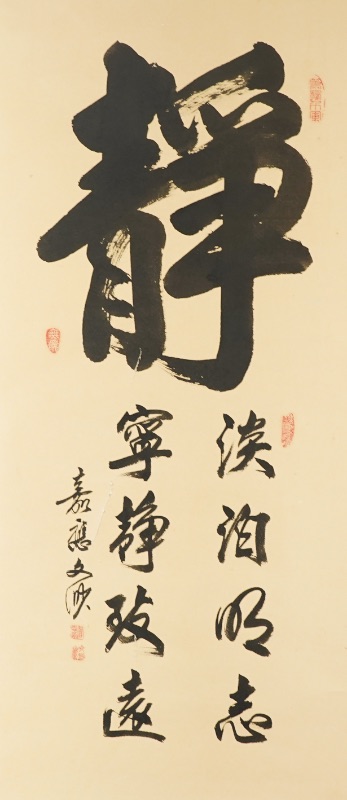 靜
淡泊明志
寧靜致遠
嘉應文沙